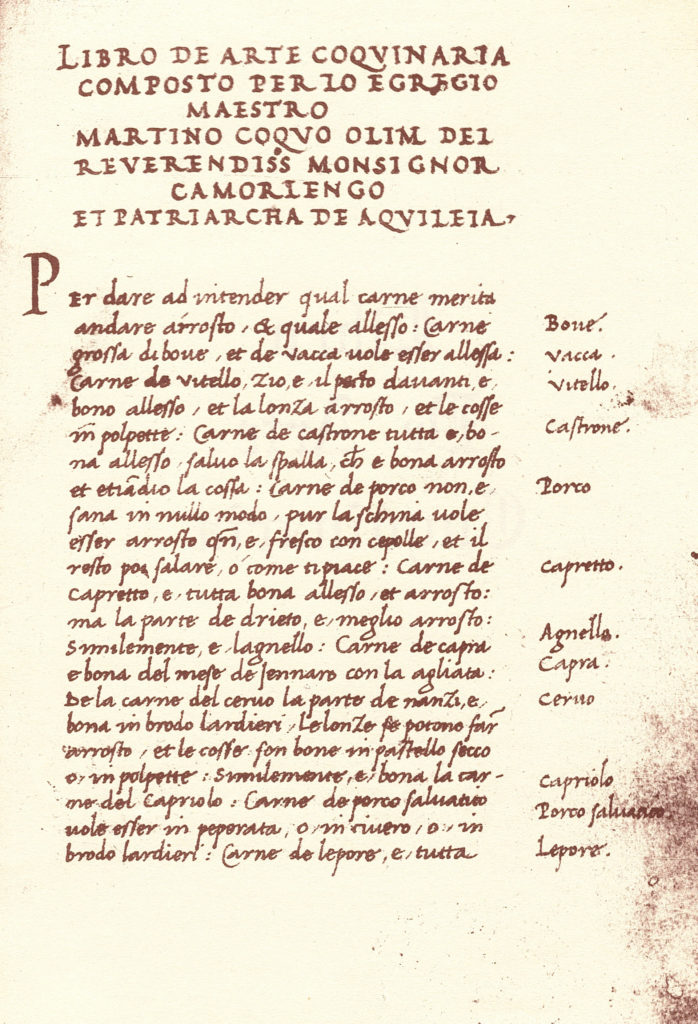 LIBRO DE ARTE COQVINARIA
COMPOSTO PER LO EGREGIO
MAESTRO
MARTINO COQVO OLIM DEL
REVERENDISS MONSIGNOR
CAMORLENGO
ET PATRIARCHA DE AQVILEIA
Per dare ad intender qual carne merita
andare arrosto, & quale allesso: Carne
Boue.
grossa di boue, et de vacca uole esser allessa:
vacca.
Carne de vitello, zio, e, il pecto dauanti, e,
vitello.
bono allesso, et la lonza arrosto, et le cosse
in polpette: Carne de castrone tutta e, bo-
Castrone.
na allesso, saluo la spalla, ch e bona arrosto
et etiādio la cossa: Carne de porco non, e,
Porco
sana in nullo modo, pur la schina uole
esser arrosto qn, e, fresco con cepolle, et il
resto poi salare, o come ti piace: Carne de
Capretto.
Capretto, e, tutta bona allesso, et arrosto:
ma la parte de drieto, e, meglio arrosto:
Similemente, e, lagnello: Carne de capra
Agnello.
e bona del mese de Jennaro con la agliata:
Capra.
De la carne del ceruo la parte de nanzi, e,
Ceruo
bona in brodo lardieri, Le lonze se potono far
arrosto, et le cosse son bone in pastello secco
o, in polpette: Similemente, e, bona la car-
Capriolo
ne del Capriolo: Carne de porco saluatico
Porco saluatico.
uole esser in peperata, o, in ciuero, o, in
brodo lardieri: Carne de lepore, e, tutta
Lepore.